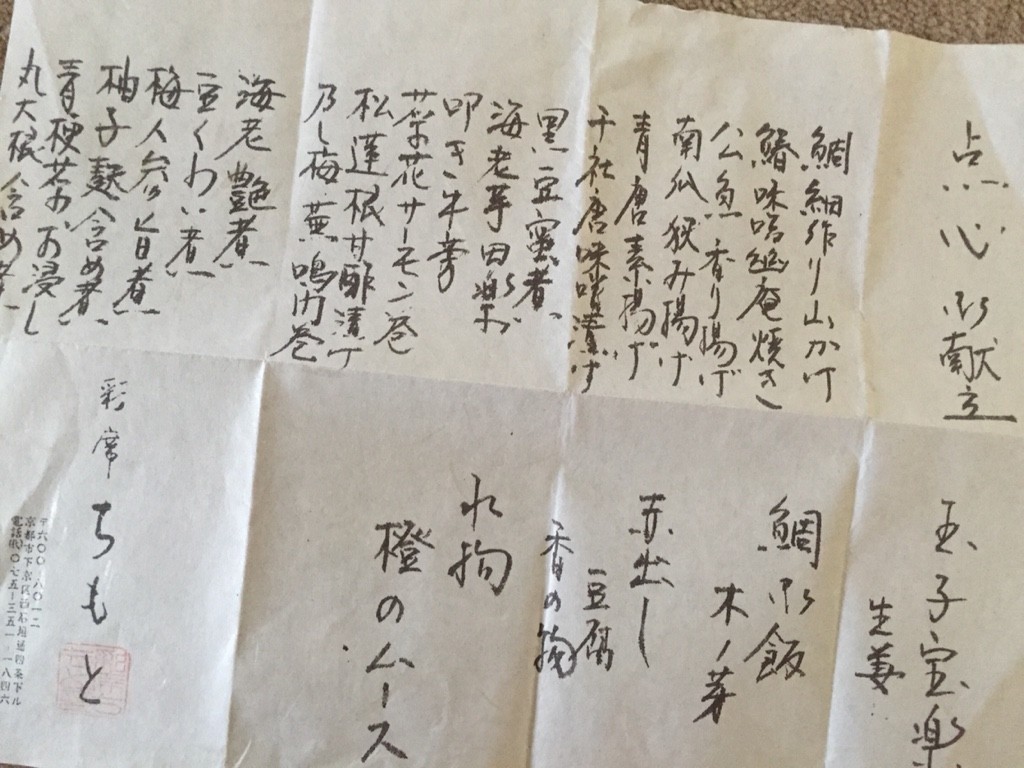 点心御献立
鯛細作り山かけ
鰆味噌幽庵焼き
公魚香り揚げ
南瓜挟み揚げ
青唐素揚げ
千社唐味噌漬け
黒豆蜜煮
海老芋田楽
叩き牛蒡
菜花サーモン巻
松蓮根甘酢漬け
乃し梅蕪鳴門巻
海老艶煮
豆くわい煮
梅人参旨煮
柚子麩含め煮
青梗菜お浸し
丸大根含め煮
玉子宝楽
生姜
鯛御飯
木ノ芽
赤出し
豆腐
香の物
水物
橙のムース
彩席ちもと
〒六〇〇-八〇一二
京都市下京区西石垣通四条下ル
電話㈹〇七五-三五一-一八四六